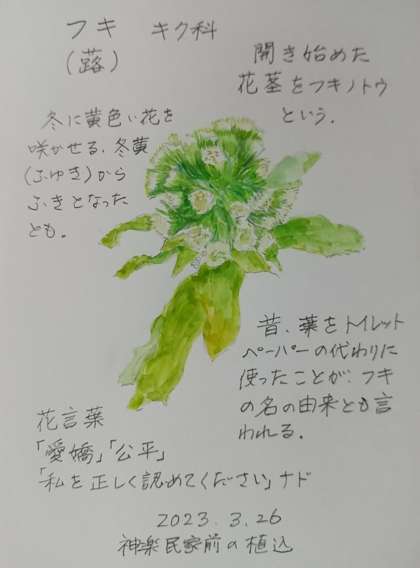 フキ キク科
(蕗)
開き始めた
花茎をフキノトウ
という.
冬に黄色い花を
咲かせる、冬黄
(ふゆき)から
ふきとなった
とも.
昔、葉をトイレット
ペーパーの代わりに
使ったことが、フキ
の名の由来とも言
われる.
花言葉
「愛嬌」「公平」
「私を正しく認めてください」ナド
2023.3.26
神楽民家前の植込